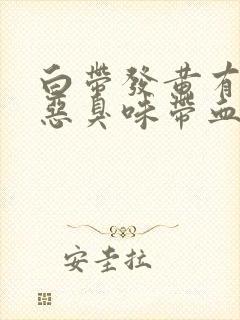 白帶發黃有
惡臭味帶血
安圭拉